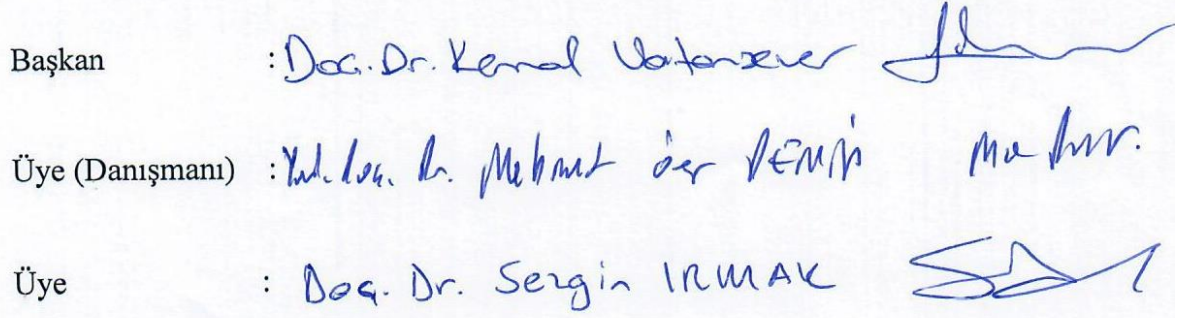 Başkan : Doç. Dr. Kemal Vatansever
Üye (Danışmanı) : Yrd. Doç. Dr. Mehmet Özer DEMİR
Üye : Doç. Dr. Sezgin IRMAK